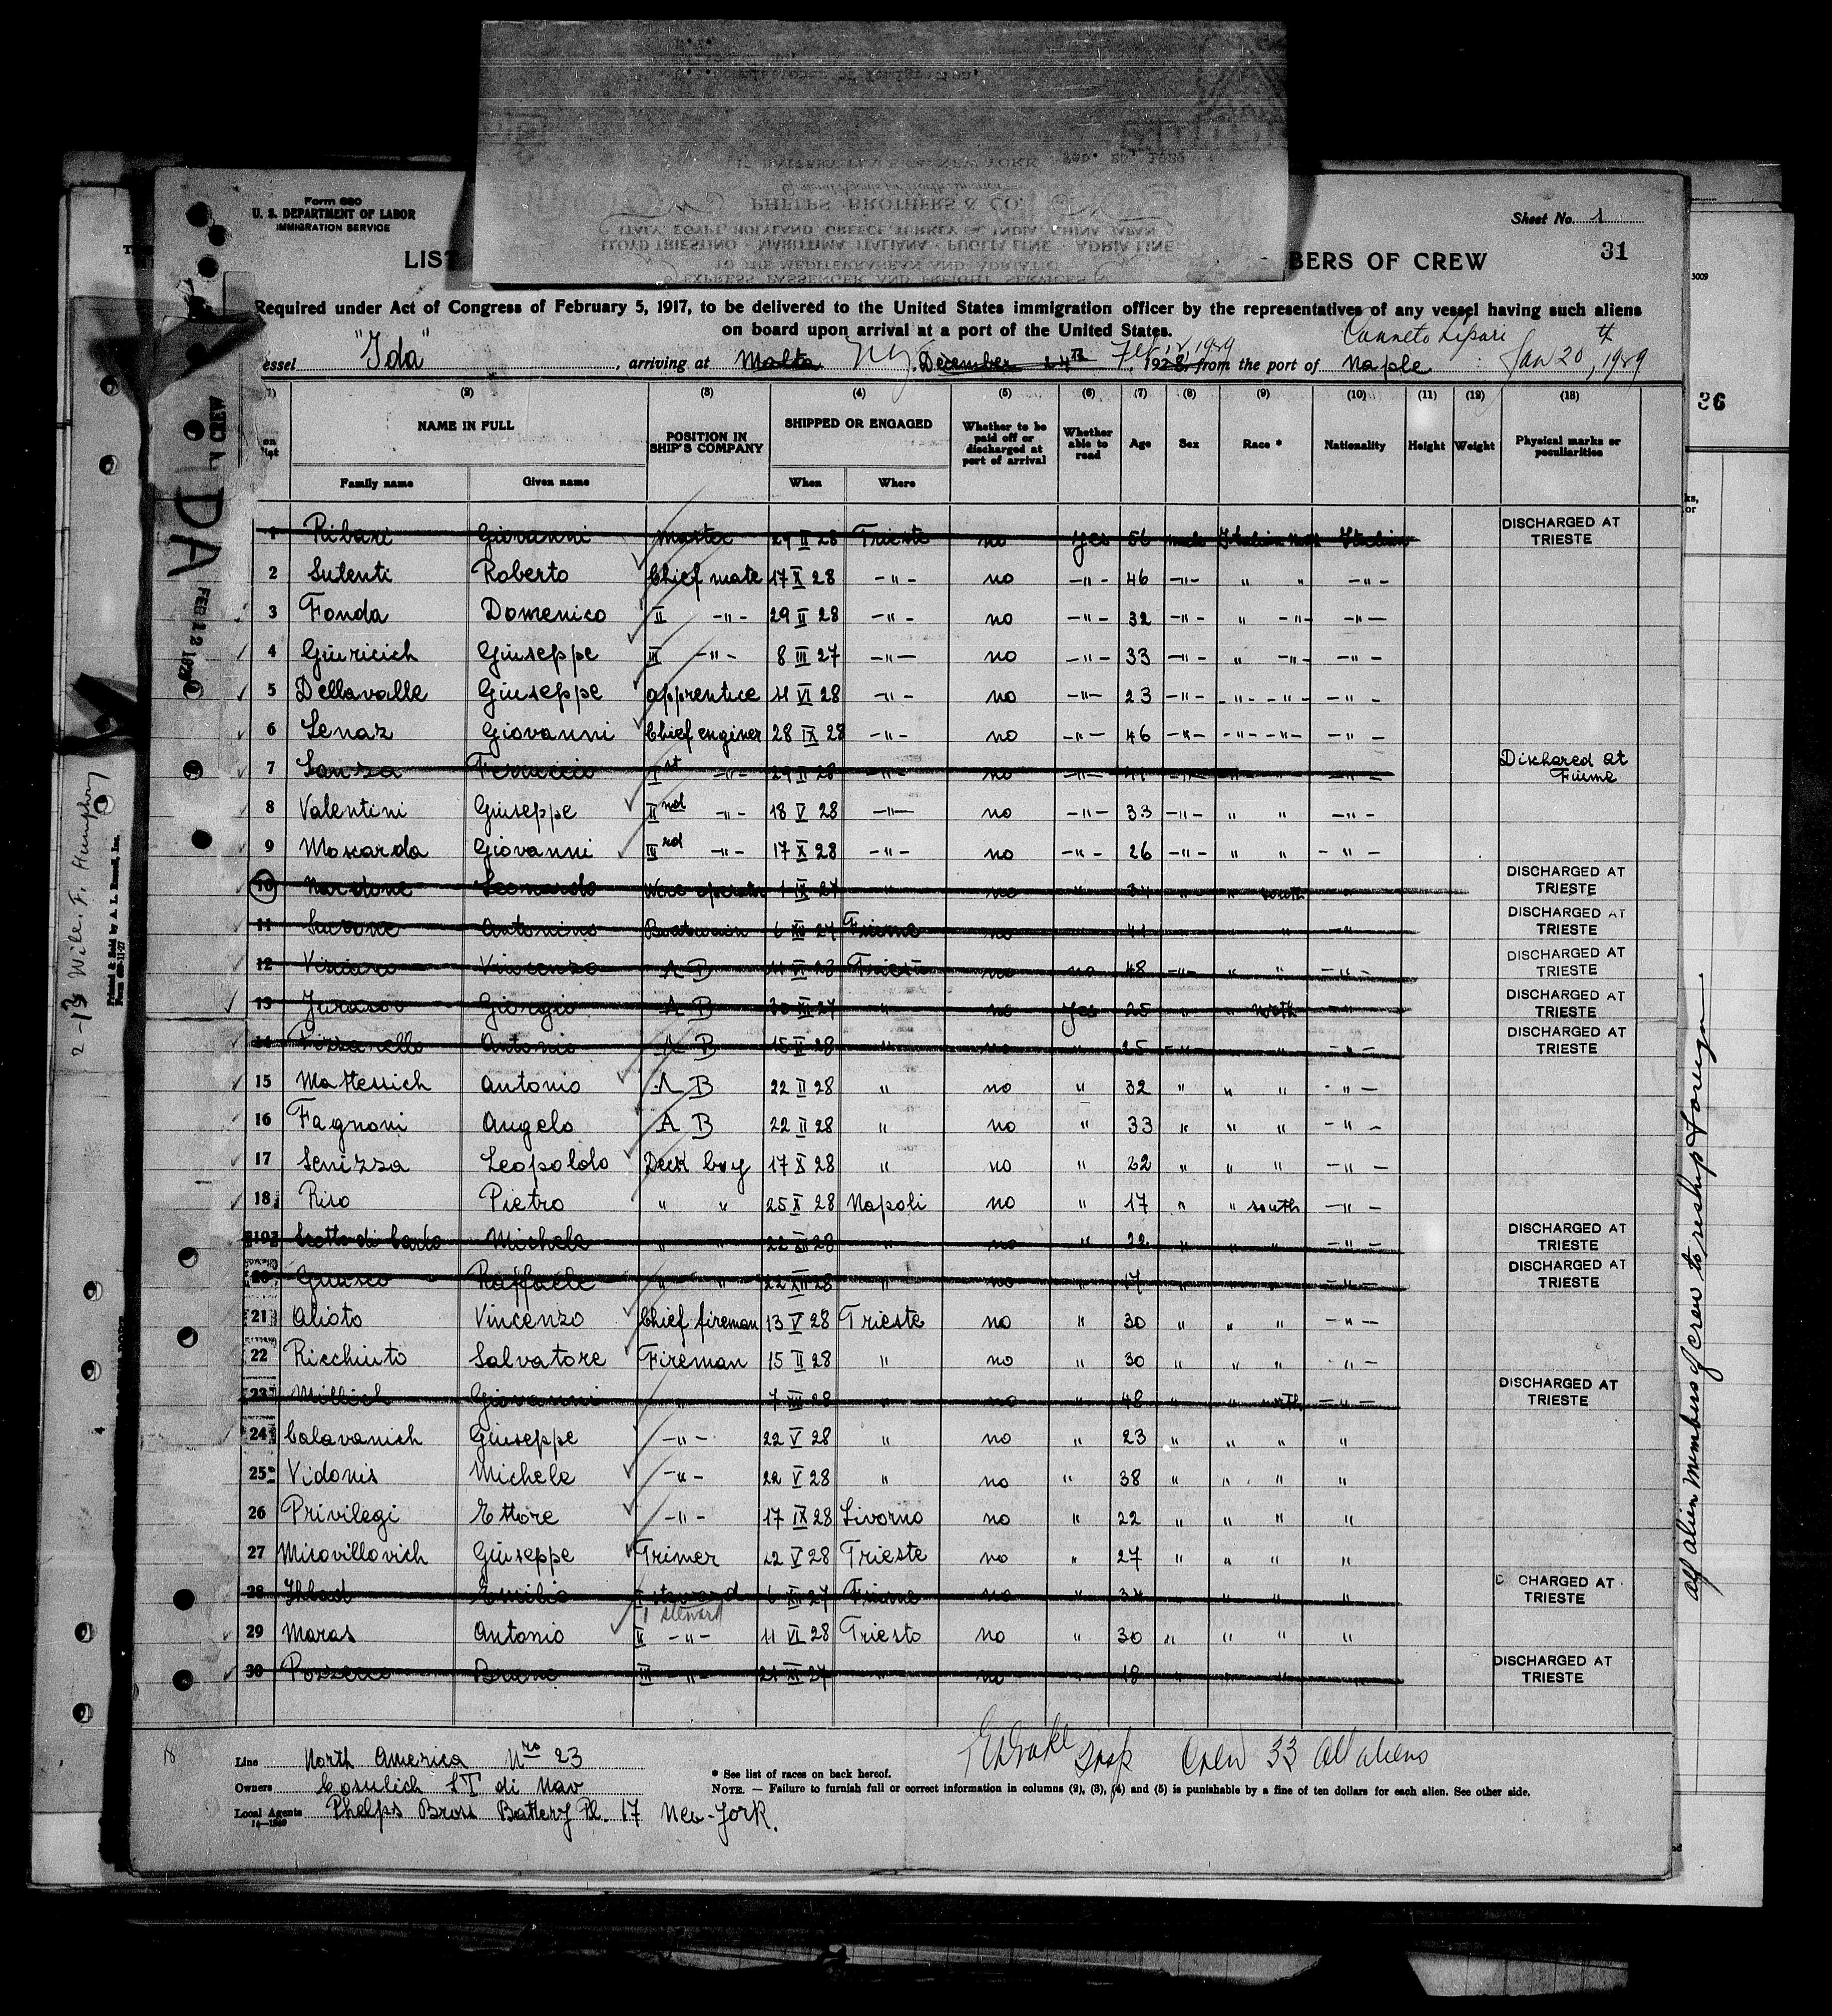 Form 680
U. S. DEPARTMENT OF LABOR
IMMIGRATION SERVICE
Sheet No. 1
31
LIST
BERS OF CREW
PHELPS BROTHERS & CO.
ITALY, EGYPT, HOLYLAND, GREECE, TURKEY, INDIA, CHINA, JAPAN
LLOYD TRIESTINO - MARITTIMA ITALIANA - PUGLIA LINE - ADRIA LINE
TO THE MEDITERRANEAN AND ADRIATIC
EXPRESS PASSENGER AND FREIGHT SERVICES
Required under Act of Congress of February 5, 1917, to be delivered to the United States immigration officer by the representatives of any vessel having such aliens
on board upon arrival at a port of the United States.
Canneto Lipari
essel "Ida", arriving at Malta NY. December 24th Feb 12, 1929 1928, from the port of Naple Jan 20th, 1929
(1) (2) (3) (4) (5) (6) (7) (8) (9) (10) (11) (12) (13)
NAME IN FULL POSITION IN SHIP'S COMPANY SHIPPED OR ENGAGED Whether to be paid off or discharged at port of arrival Whether able to read Age Sex Race * Nationality Height Weight Physical marks or peculiarities
Family name Given name When Where
1 Ribari Giovanni Master 29 II 28 Trieste no yes 56 male Italian North Italian DISCHARGED AT TRIESTE
2 Sutenti Roberto Chief mate 17 X 28 -"- no -"- 46 -"- " " -"-
3 Fonda Domenico II -"- 29 II 28 -"- no -"- 32 -"- " -"- -"-
4 Giuricich Giuseppe III -"- 8 III 27 -"- no -"- 33 -"- " -"- -"-
5 Dellavalle Giuseppe apprentice 11 VI 28 -"- no -"- 23 -"- -"- -"- -"-
6 Senaz Giovanni Chief enginer 28 IX 28 -"- no -"- 46 -"- -"- -"- -"-
7 Sanza Ferruccio Ist -"- 29 II 28 -"- no -"- 41 -"- -"- " -"- Dischared at Fiume
8 Valentini Giuseppe IInd -"- 18 V 28 -"- no -"- 33 -"- " " -"-
9 Moscarda Giovanni IIIrd -"- 17 X 28 -"- no -"- 26 -"- " " -"-
10 Nardone Leonardo 1 IX 27 " no " 34 " " south " DISCHARGED AT TRIESTE
11 Antonino Boatswain 6 XII 27 Fiume no " 41 " " " -"- DISCHARGED AT TRIESTE
12 Vincenzo A B 11 VI 23 Trieste no no 48 -"- " " -"- DISCHARGED AT TRIESTE
13 Jurasov Giorgio A B 30 XII 27 " no yes 25 " " north -"- DISCHARGED AT TRIESTE
14 Pizzarello Antonio A B 15 II 28 " no " 25 -"- " " -"- DISCHARGED AT TRIESTE
15 Mattessich Antonio A B 22 II 28 " no " 32 " " " -"-
16 Fagnoni Angelo A B 22 II 28 " no " 33 " " " -"-
17 Scrizza Leopoldo Deck boy 17 X 28 " no " 22 " " " -"-
18 Riso Pietro " " 25 X 28 Napoli no " 17 " " south -"-
19 Scotto di Carlo Michele " " 22 XII 28 " no " 22 " " " -"- DISCHARGED AT TRIESTE
20 Raffaele " " 22 XII 28 " no " 17 " " " -"- DISCHARGED AT TRIESTE
21 Alioto Vincenzo Chief fireman 13 V 28 Trieste no " 30 " " " -"-
22 Ricchiuto Salvatore Fireman 15 II 28 " no " 30 " " " -"-
23 Millich Giovanni " 7 III 28 " no " 48 " " north -"- DISCHARGED AT TRIESTE
24 Calavanich Giuseppe -"- 22 V 28 " no " 23 " " " "
25 Vidonis Michele -"- 22 V 28 " no " 38 " " " "
26 Privilegi Ettore -"- 17 IX 28 Livorno no " 22 " " " "
27 Misovillovich Giuseppe Trimer 22 V 28 Trieste no " 27 " " " "
28 Emilio I steward 6 XII 27 Fiume no " 34 " " " " CHARGED AT TRIESTE
I steward
29 Maras Antonio II -"- 11 VI 28 Triesto no " 30 " " " "
30 Pozzecco Bruno III -"- 21 XII 27 " no " 18 " " " " DISCHARGED AT TRIESTE
Line North America Nro 23
Owners Cosulich S T di Nav
Local Agents Phelps Bross Battery Pl. 17 New-York.
14-1240
Insp Crew 33 all aliens
* See list of races on back hereof.
NOTE. — Failure to furnish full or correct information in columns (2), (3), (4) and (5) is punishable by a fine of ten dollars for each alien. See other side.
All alien members of crew to reship foreign
CREW
DA
FEB 12 1929
2-13 Wile F. Humphry
Printed & Sold by A. L. Russel, Inc.
36
3009
18